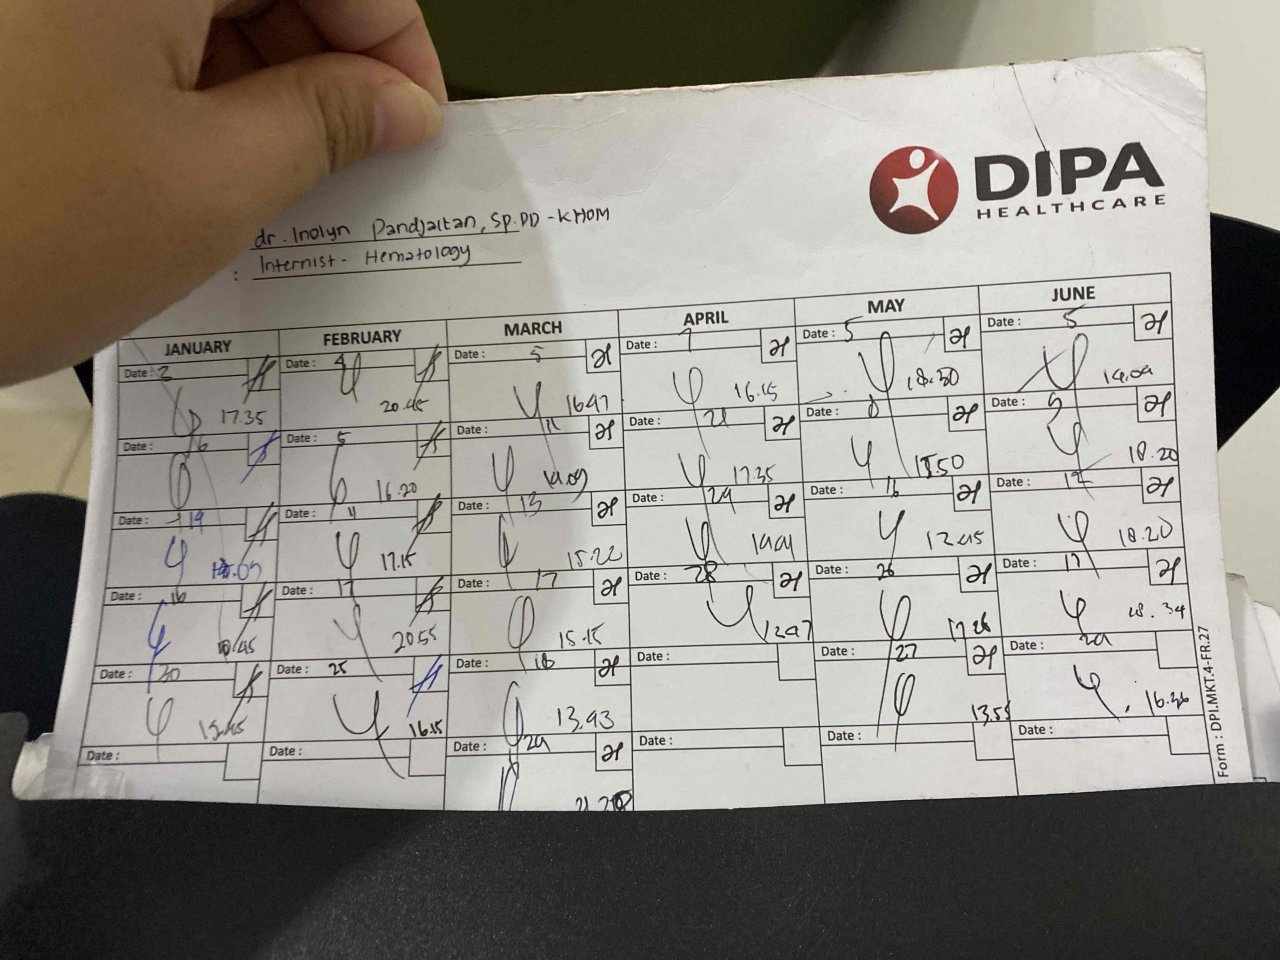 DIPA
HEALTHCARE
dr. Inolyn Pandjaitan, Sp.PD-KHOM
: Internist - Hematology
JANUARY FEBRUARY MARCH APRIL MAY JUNE
Date : 2 Date : 4 Date : 5 Date : 7 Date : 5 Date : 5
17.35 20.45 16.47 16.15 18.30 14.09
Date : 6 Date : 5 Date : 11 Date : 21 Date : 8 Date : 9
16.20 17.35 18.20
Date : Date : 11 Date : 13 Date : 24 Date : 16 Date : 12
17.15 15.22 12.45 18.20
Date : 16 Date : 17 Date : 17 Date : 28 Date : 26 Date : 17
20.55 15.15 12.47 17.26 18.34
Date : 20 Date : 25 Date : 18 Date : Date : 27 Date : 24
15.45 16.15 13.43 13.55 16.36
Date : Date : Date : 24 Date : Date : Date :
Form : DPI.MKT.4-FR.27